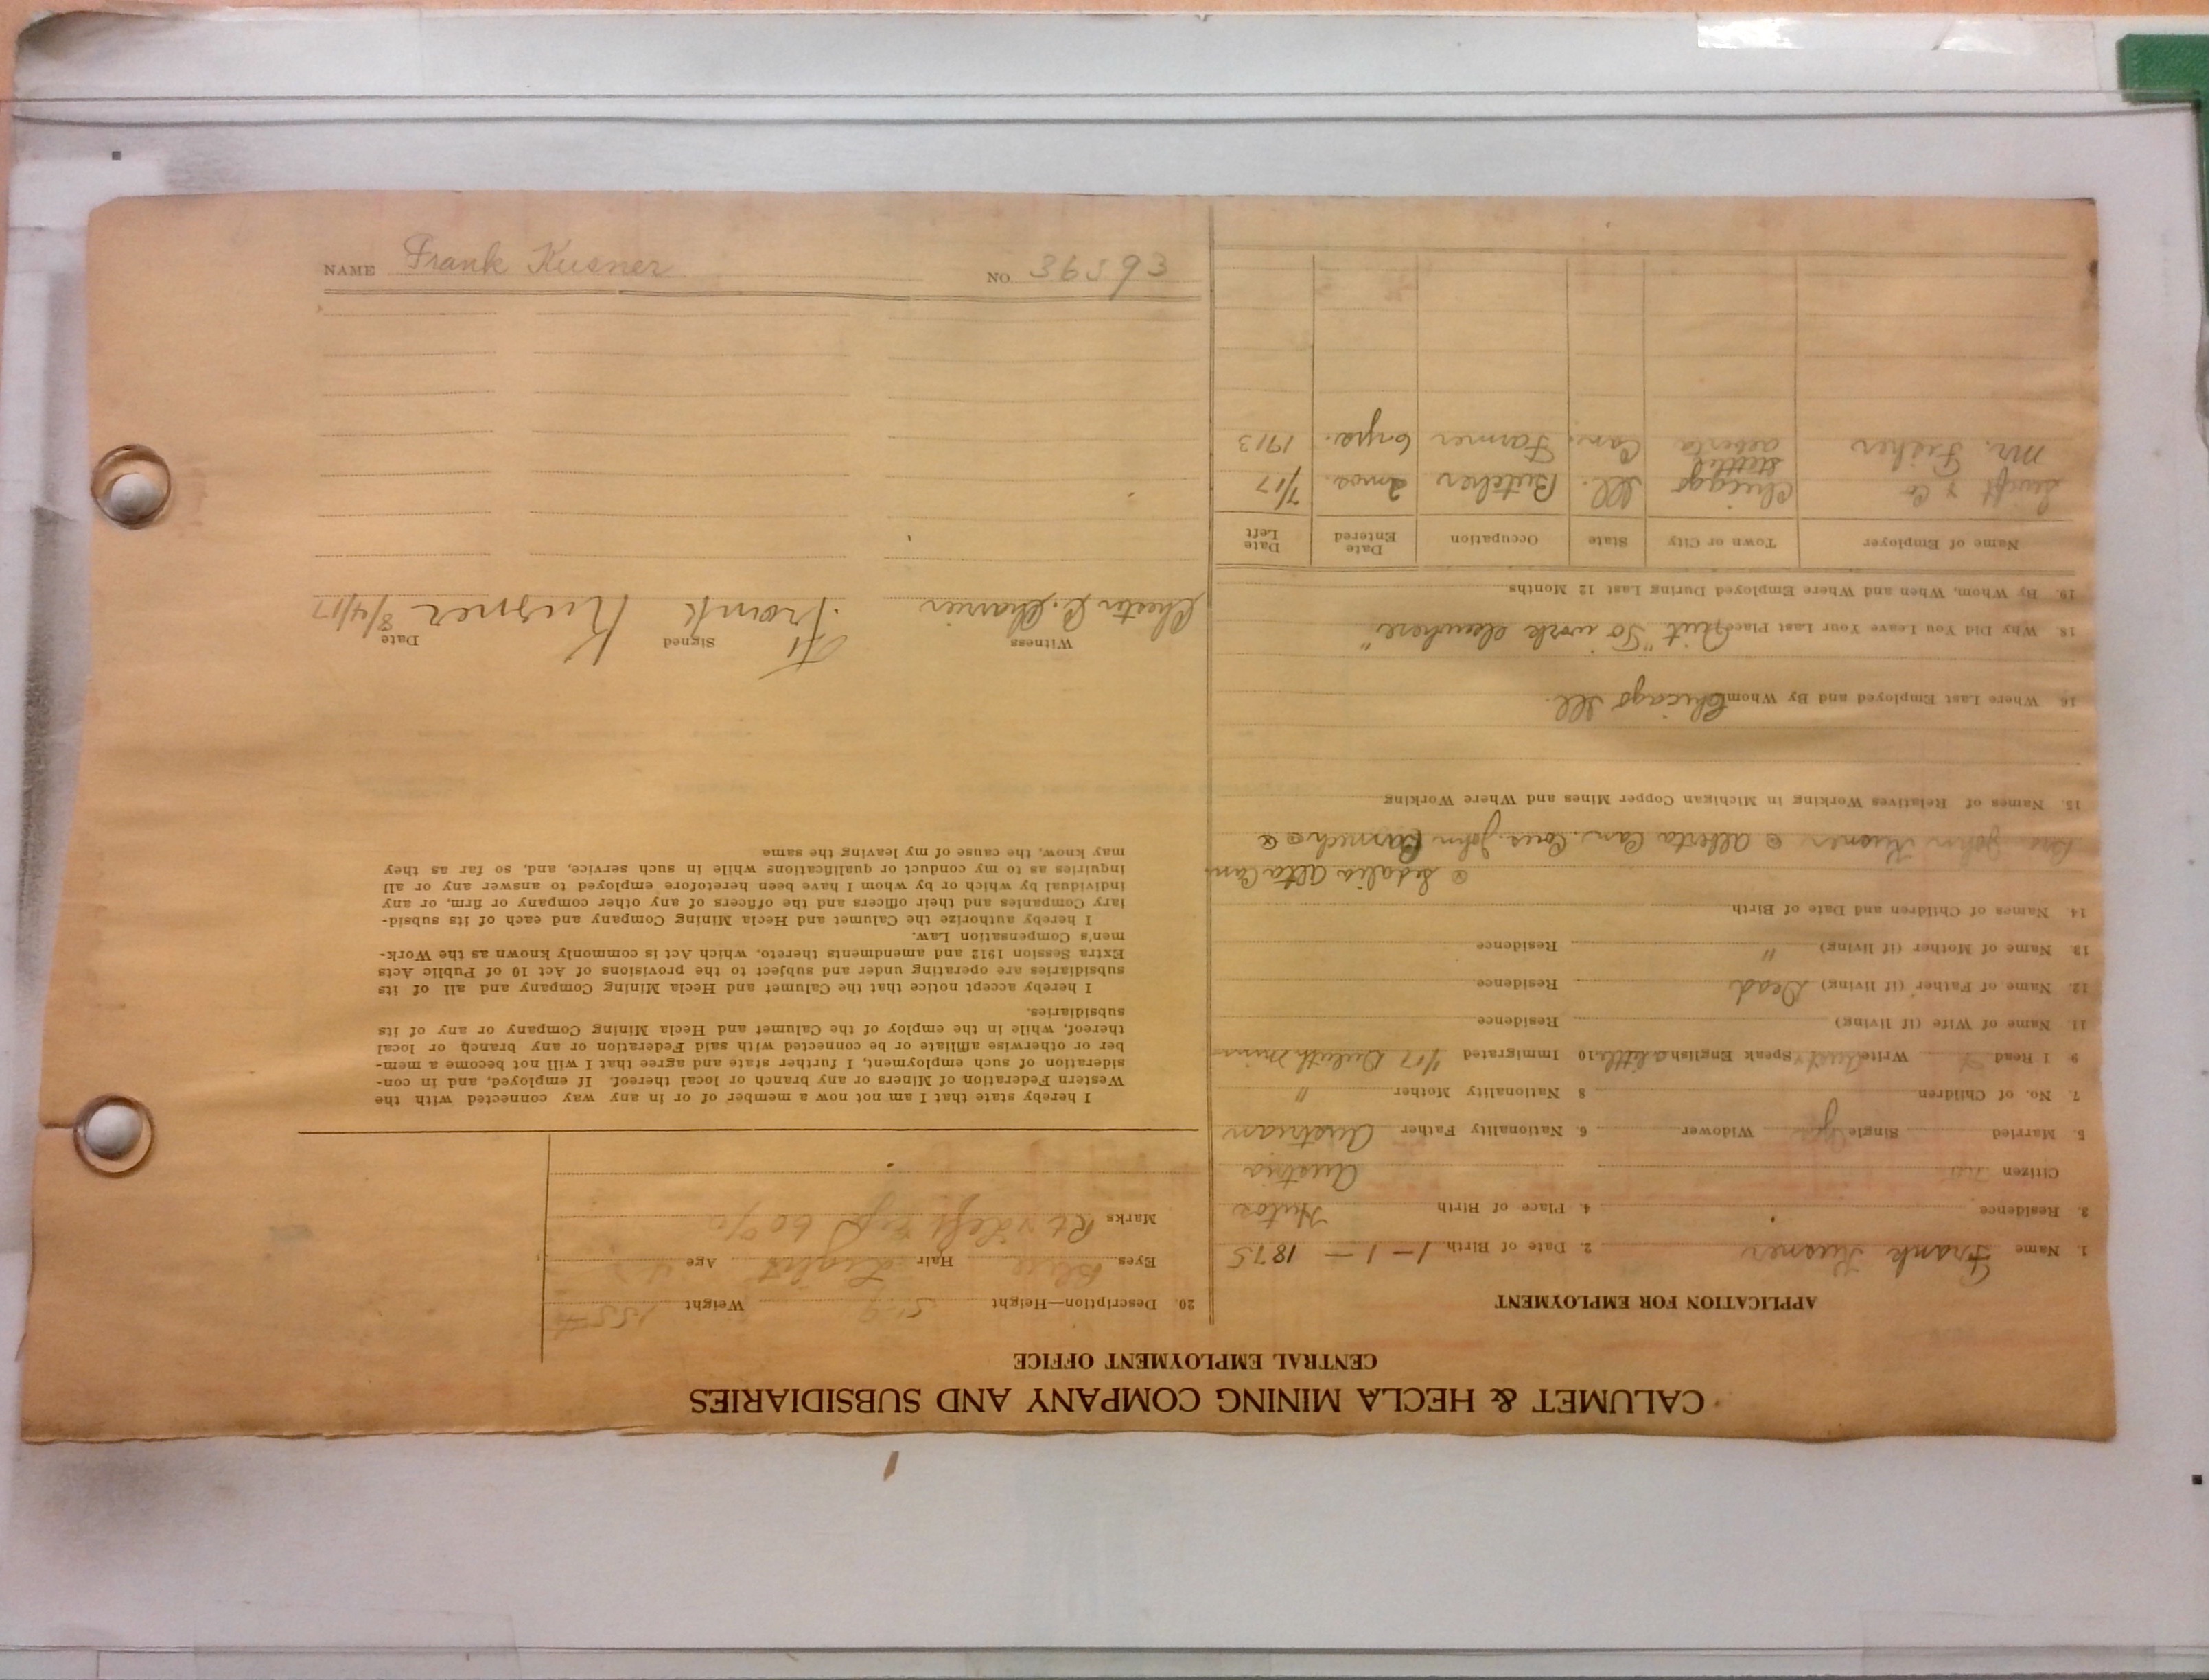 CALUMET & HECLA MINING COMPANY AND SUBSIDIARIES
CENTRAL EMPLOYMENT OFFICE
APPLICATION FOR EMPLOYMENT
1. Name Frank Kusner 2. Date of Birth 1 - 1 - 1875
3. Residence 4. Place of Birth
Citizen Austria
5. Married Single Yes Widower 6. Nationality Father Austrian
7. No. of Children 8 Nationality Mother "
9 I Read Write Speak English a little 10 Immigrated Duluth Minn
11. Name of Wife (if living) Residence
12. Name of Father (if living) Dead Residence
13. Name of Mother (if living) " Residence
14. Names of Children and Date of Birth
@ Sedalia Alta Can.
Bro John Kusner @ Alberta Can. Cous. John
15. Names of Relatives Working in Michigan Copper Mines and Where Working
16 Where Last Employed and By Whom Chicago Ill.
18. Why Did You Leave Your Last Place Quit "To work elsewhere"
19. By Whom, When and Where Employed During Last 12 Months
Name of Employer Town or City State Occupation Date Entered Date Left
Swift & Co Chicago Ill. Butcher 2 mos. 7/17
Mr. Fisher Alberta Can. Farmer 6 yrs. 1913
20. Description—Height 5-9 Weight 155#
Eyes Blue Hair Light Age 42
Marks Rt & Left eye 60%
I hereby state that I am not now a member of or in any way connected with the
Western Federation of Miners or any branch or local thereof. If employed, and in con-
sideration of such employment, I further state and agree that I will not become a mem-
ber or otherwise affiliate or be connected with said Federation or any branch or local
thereof, while in the employ of the Calumet and Hecla Mining Company or any of its
subsidiaries.
I hereby accept notice that the Calumet and Hecla Mining Company and all of its
subsidiaries are operating under and subject to the provisions of Act 10 of Public Acts
Extra Session 1912 and amendments thereto, which Act is commonly known as the Work-
men's Compensation Law.
I hereby authorize the Calumet and Hecla Mining Company and each of its subsid-
iary Companies and their officers and the officers of any other company or firm, or any
individual by which or by whom I have been heretofore employed to answer any or all
inquiries as to my conduct or qualifications while in such service, and, so far as they
may know, the cause of my leaving the same
Witness Signed Date
Chester Frank Kusner 8/4/17
NAME Frank Kusner NO. 36593